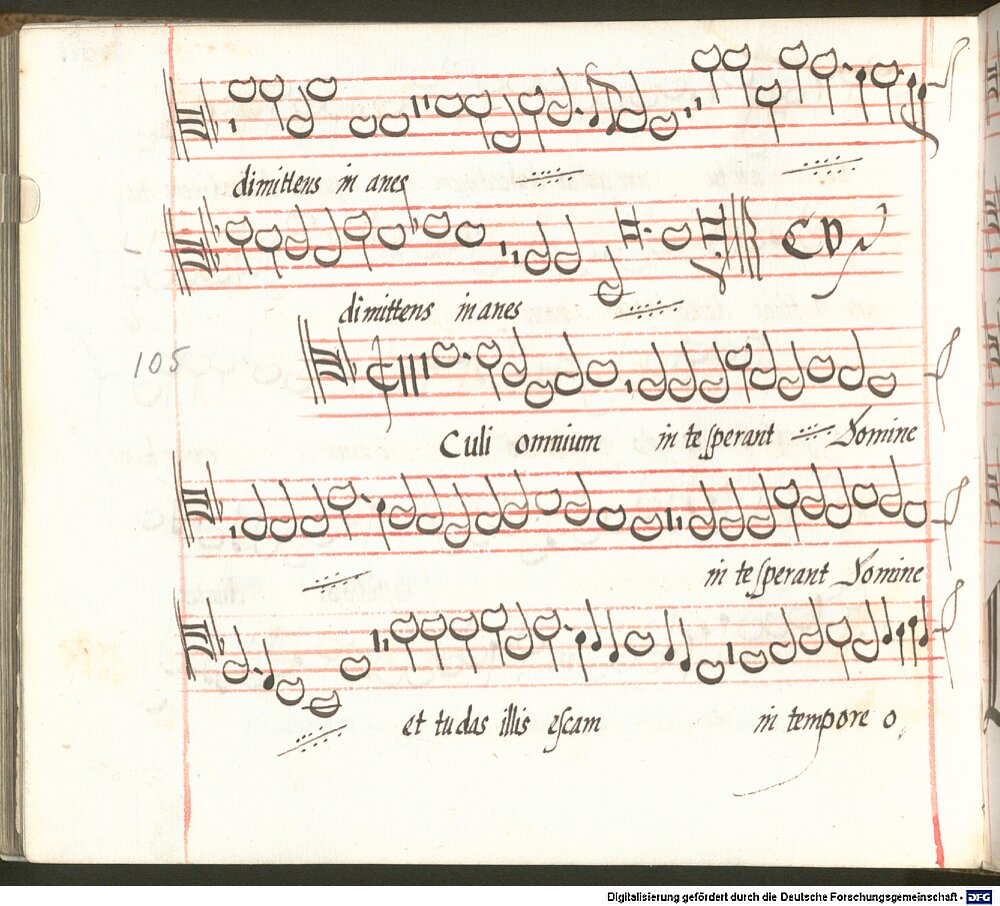 dimittens in anes
dimittens in anes
105
Culi omnium in te sperant Domine
in te sperant Domine
et tu das illis escam in tempore o
Digitalisierung gefördert durch die Deutsche Forschungsgemeinschaft - DFG